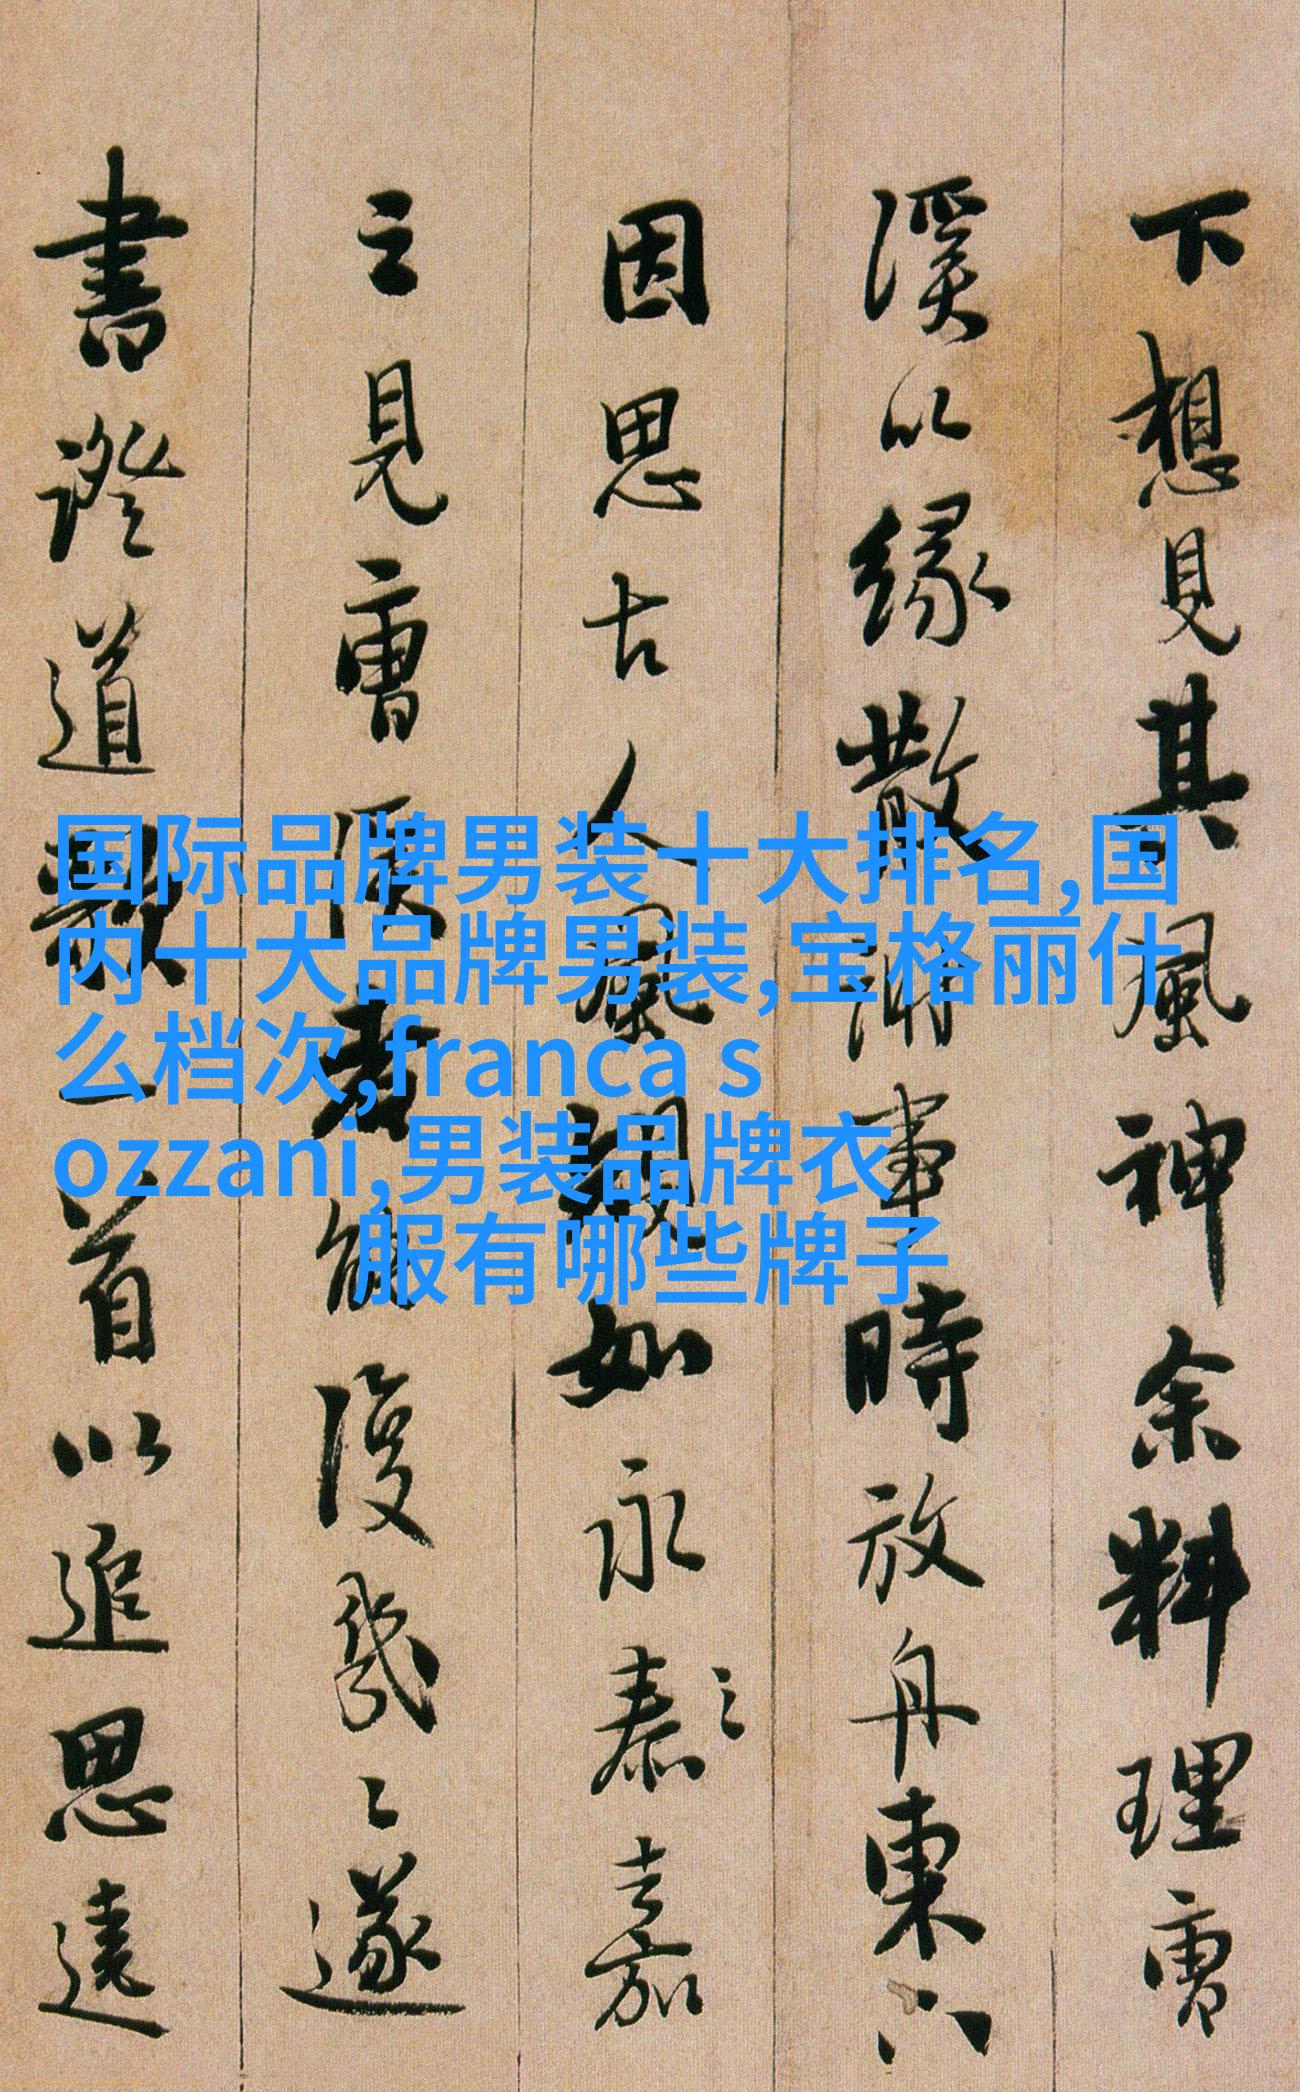 下想見其風神余料理曹
溪以緣散事時放舟東
因思古人風調如永泰之嘉
之見曹溪者能復幾〻遂
書證道歌一首以追思遠
国际品牌男装十大排名,国
内十大品牌男装,宝格丽什
么档次,franca s
ozzani,男装品牌衣
服有哪些牌子